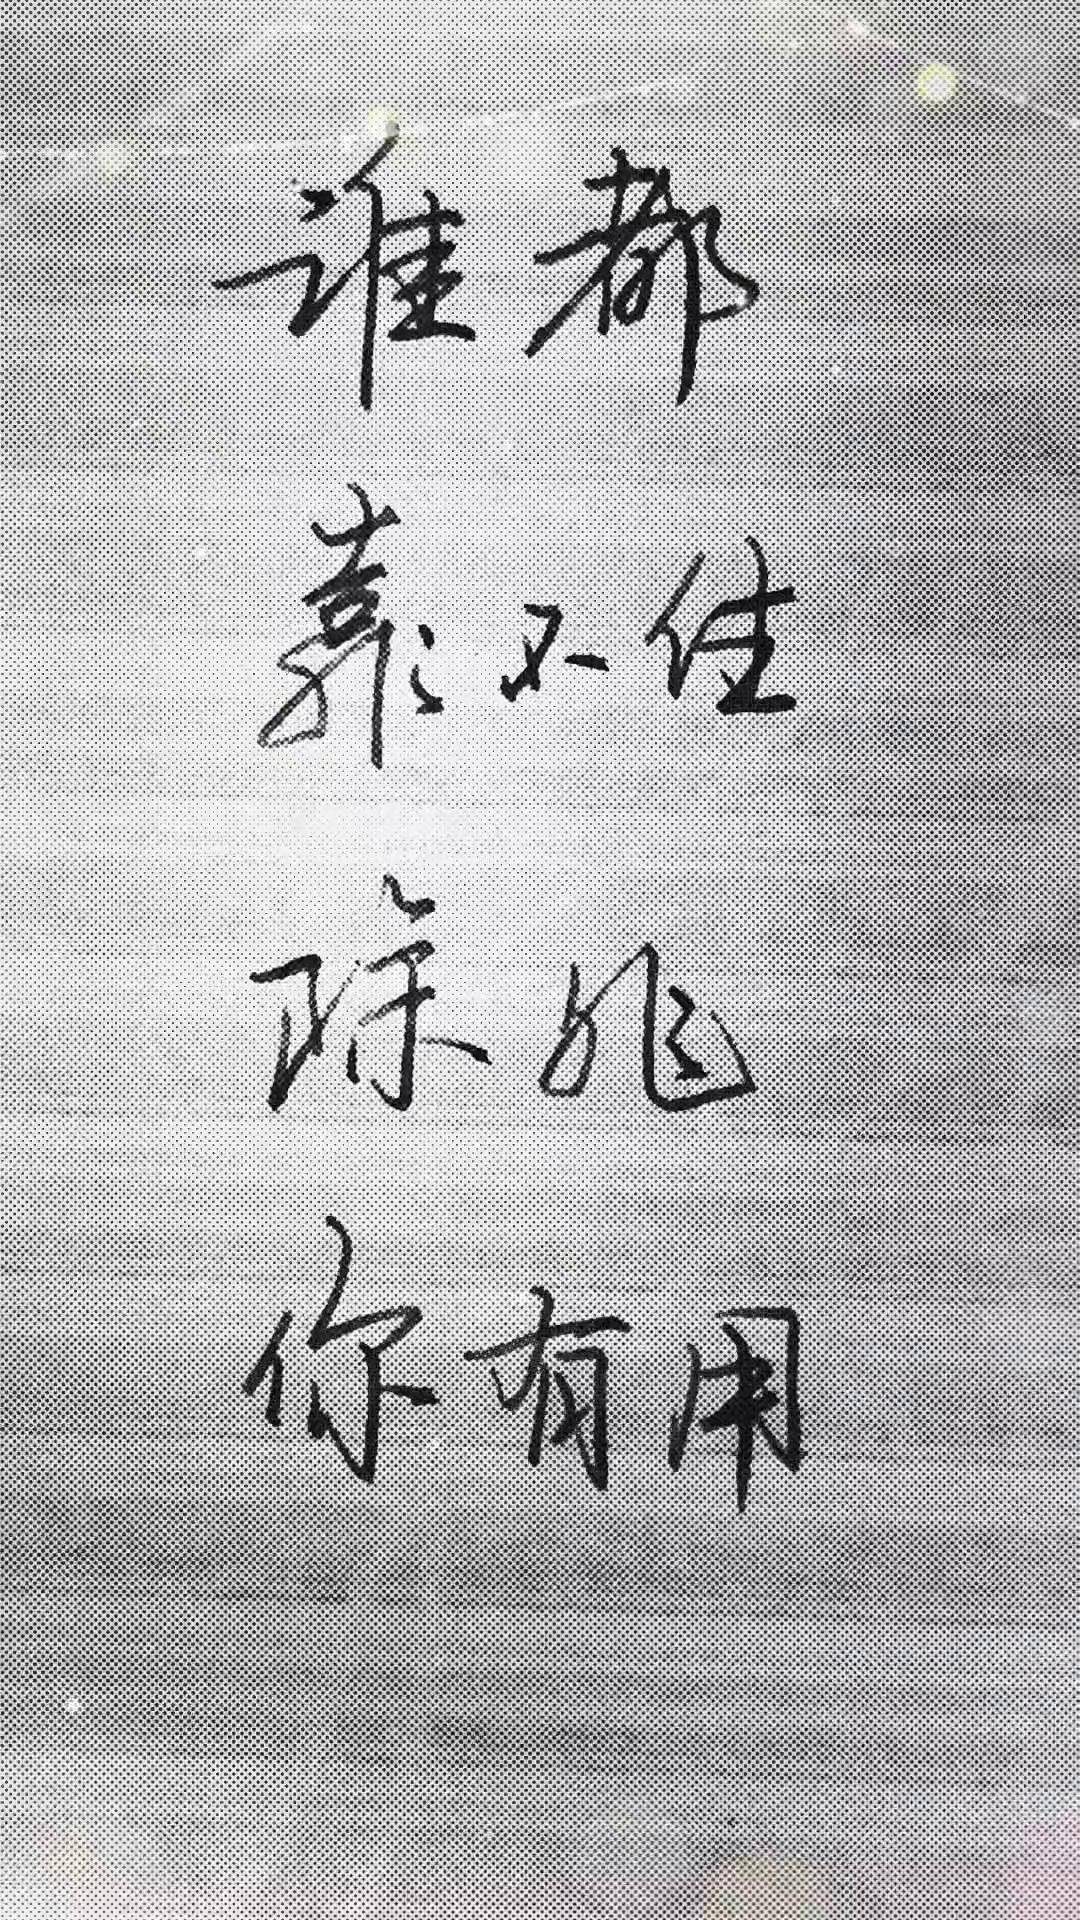 谁都
靠不住
除非
你有用